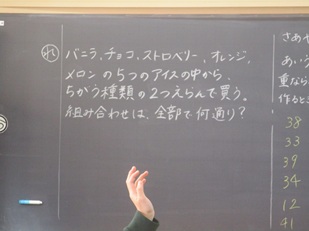 れい
バニラ、チョコ、ストロベリー、オレンジ、
メロンの5つのアイスの中から、
ちがう種類の2つえらんで買う。
組み合わせは、全部で何通り?
さあや
あいう
重なら
作ると
38
33
39
34
12
41